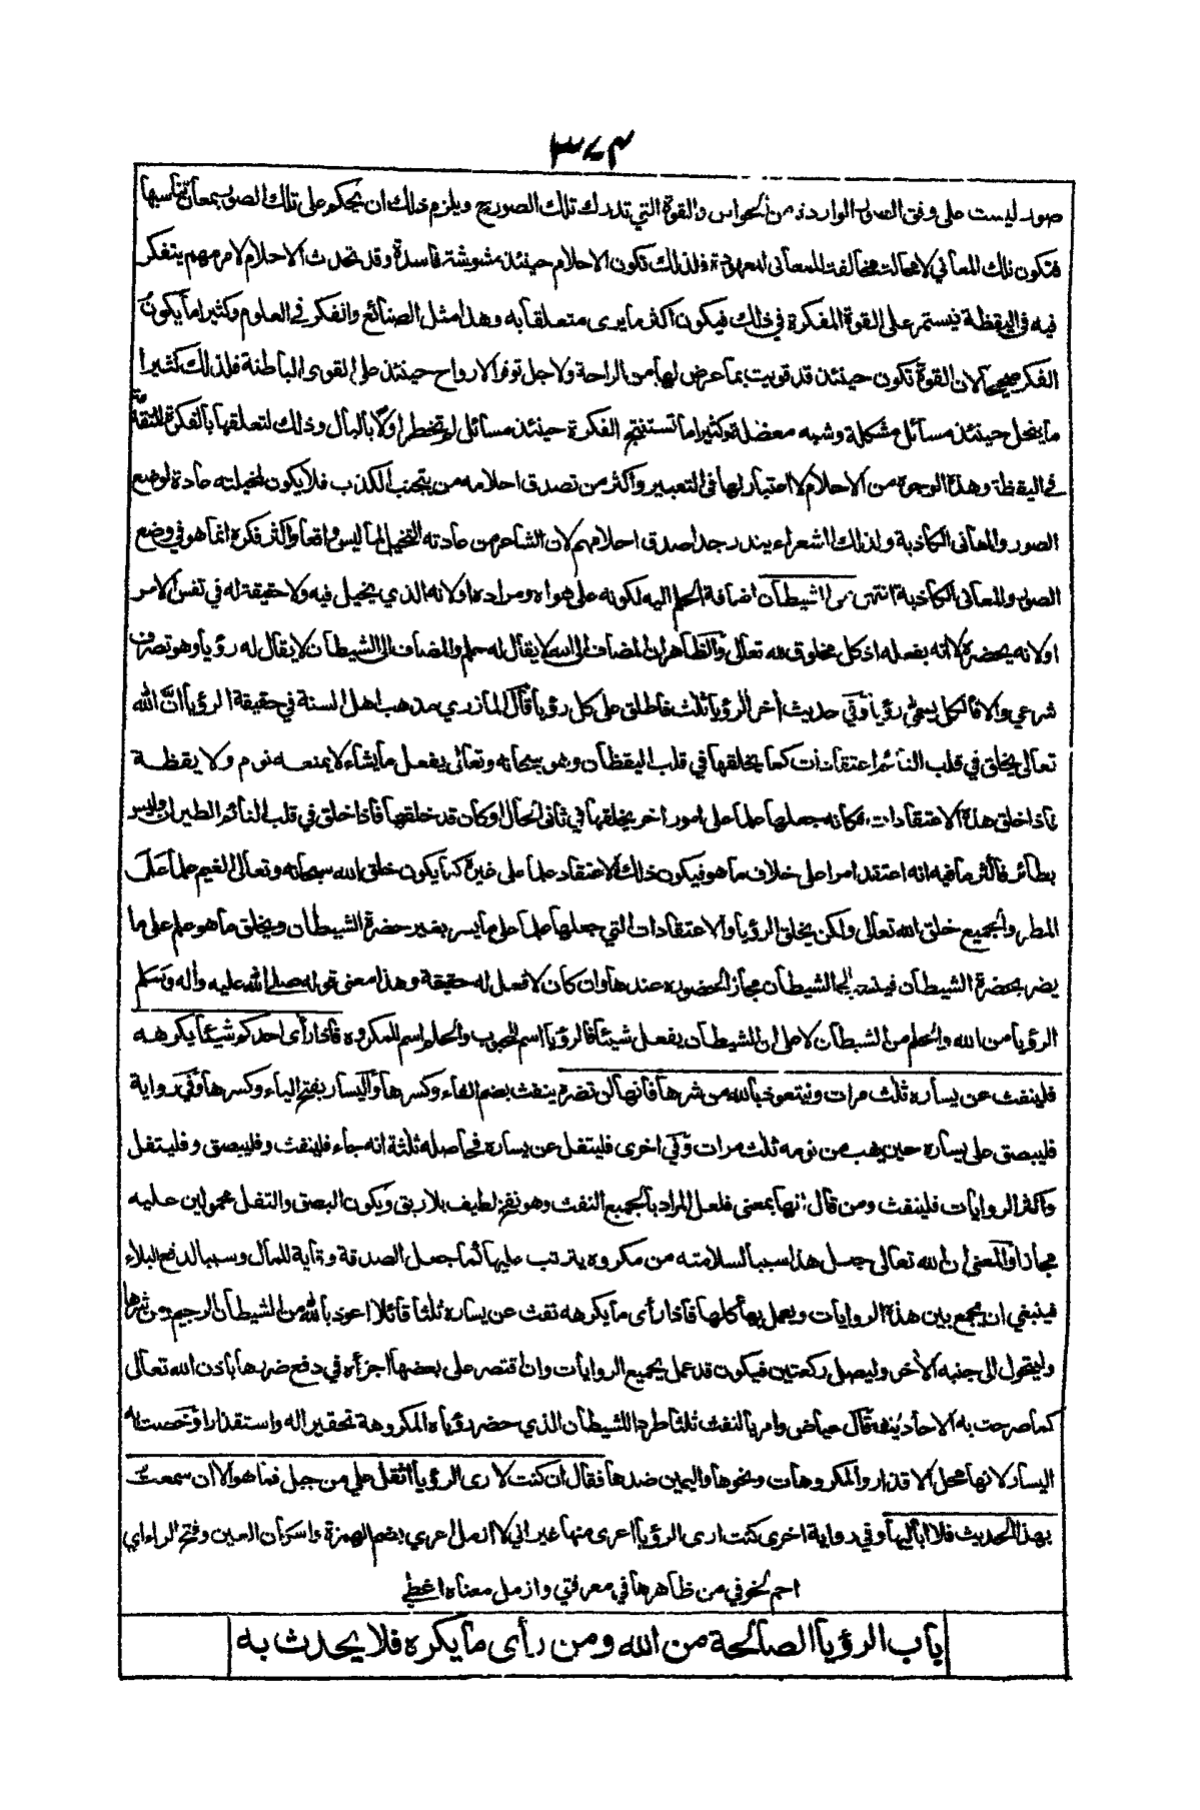 ٣٧٤
صور ليست على وفق الصور الواردة من الحواس والقوة التي تدرك تلك الصور ويلزم ذلك ان يحكم على تلك الصور بمعان تناسبها
فتكون تلك المعاني لا محالة مخالفة للمعانى المعهودة فلذلك تكون الاحلام حينئذ مشوشة فاسدة وقد تحدث الاحلام لامر مهم يتفكر
فيه فى اليقظة فيستمر على القوة المفكرة في ذلك فيكون أكثر ما يرى متعلقا به وهذا مثل الصنائع والفكر في العلوم وكثيرا ما يكون
الفكر صحيحا لان القوة تكون حينئذ قد قويت بما عرض لها من الراحة ولاجل توفر الارواح حينئذ على القوى الباطنة فلذلك كثيرا
ما ينحل حينئذ مسائل مشكلة وشبه معضلة وكثيرا ما تستنتج الفكرة حينئذ مسائل لم تخطر اولا بالبال وذلك لتعلقها بالفكرة المتقدمة
في اليقظة وهذه الوجوه من الاحلام لا اعتبار لها فى التعبير واكثر من تصدق احلامه من يتجنب الكذب فلا يكون لمخيلته عادة لوضع
الصور والمعانى الكاذبة ولذلك الشعراء يندر جدا صدق احلامهم لان الشاعر من عادته التخيل لما ليس واقعا واكثر فكره انما هو في وضع
الصور والمعانى الكاذبة انتهى من الشيطان اضافة الحلم اليه لكونه على هواه ومراده او لانه الذي يخيل فيه ولا حقيقة له في نفس الامر
او لانه يحضره لا انه يفعله اذ كل مخلوق لله تعالى والظاهر ان المضاف الى الله لا يقال له حلم والمضاف الى الشيطان لا يقال له رؤيا وهو تصرف
شرعي والا فالكل يسمى رؤيا وفي حديث أخر الرؤيا ثلث فاطلق على كل رؤيا قال المازري مذهب اهل السنة في حقيقة الرؤيا ان الله
تعالى يخلق في قلب النائم اعتقادات كما يخلقها في قلب اليقظان وهو سبحانه وتعالى يفعل ما يشاء لا يمنعه نوم ولا يقظة
فاذا خلق هذه الاعتقادات فكانه جعلها علما على امور اخر يخلقها في ثانى الحال او كان قد خلقها فاذا خلق في قلب النائم الطيران وليس
بطائر فاكثر ما فيه انه اعتقد امرا على خلاف ما هو فيكون ذلك الاعتقاد علما على غيره كما يكون خلق الله سبحانه وتعالى الغيم علما على
المطر والجميع خلق الله تعالى ولكن يخلق الرؤيا والاعتقادات التي جعلها علما على ما يسر بغير حضرة الشيطان ويخلق ما هو علم على ما
يضر بحضرة الشيطان فينسب الى الشيطان مجازا لحضوره عندها وان كان لا فعل له حقيقة وهذا معنى قوله صلى الله عليه واله وسلم
الرؤيا من الله والحلم من الشيطان لا على ان الشيطان يفعل شيئا فالرؤيا اسم للمحبوب والحلم اسم للمكروه فاذا رأى احدكم شيئا يكرهه
فلينفث عن يساره ثلث مرات وليتعوذ بالله من شرها فانها لن تضره ينفث بضم الفاء وكسرها واليسار بفتح الياء وكسرها وفي رواية
فليبصق على يساره حين يهب من نومه ثلث مرات وفي اخرى فليتفل عن يساره فحاصله ثلثة انه جاء فلينفث وفليبصق وفليتفل
واكثر الروايات فلينفث ومن قال انها بمعنى فلعل المراد بالجميع النفث وهو نفخ لطيف بلا ريق ويكون البصق والتفل محمولين عليه
مجازا والمعنى ان الله تعالى جعل هذا سببا لسلامته من مكروه يترتب عليها كما جعل الصدقة وقاية للمال وسببا لدفع البلاء
فينبغي ان يجمع بين هذه الروايات ويعمل بها كلها فاذا رأى ما يكرهه نفث عن يساره ثلثا قائلا اعوذ بالله من الشيطان الرجيم ومن شرها
وليتحول الى جنبه الأخر وليصل ركعتين فيكون قد عمل بجميع الروايات وان اقتصر على بعضها اجزأه في دفع ضررها باذن الله تعالى
كما صرحت به الاحاديث قال عياض وامر بالنفث ثلثا طردا للشيطان الذي حضر رؤياه المكروهة تحقيرا له واستقذارا وخصت له
اليسار لانها محل الاقذار والمكروهات ونحوها واليمين ضدها فقال ان كنت لارى الرؤيا اثقل علي من جبل فما هو الا ان سمعت
بهذا الحديث فلا اباليها وفي رواية اخرى كنت ارى الرؤيا اعرى منها غير اني لا ازمل اعرى بضم الهمزة واسكان العين وفتح الراء اي
احم لخوفي من ظاهرها في معرفتي وازمل معناه اغطى
باب الرؤيا الصالحة من الله ومن رأى ما يكره فلا يحدث به